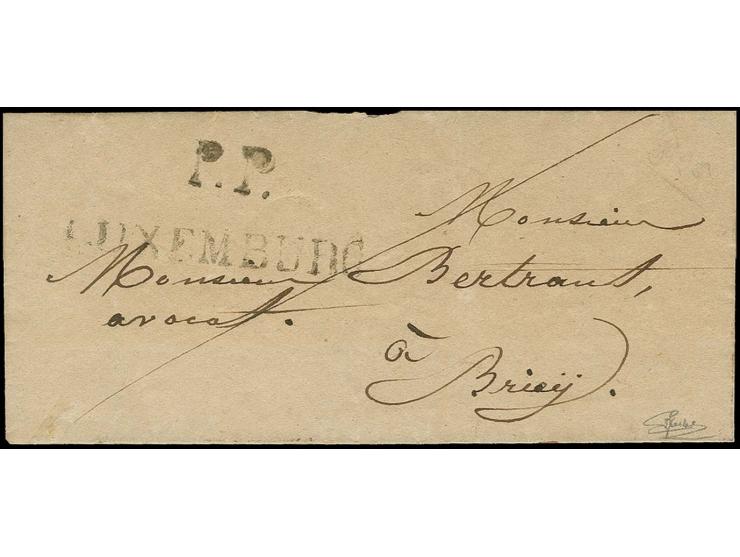 P.P.
LUXEMBURG
Monsieur
Monsieur Bertrant,
avocat.
à
Briey.